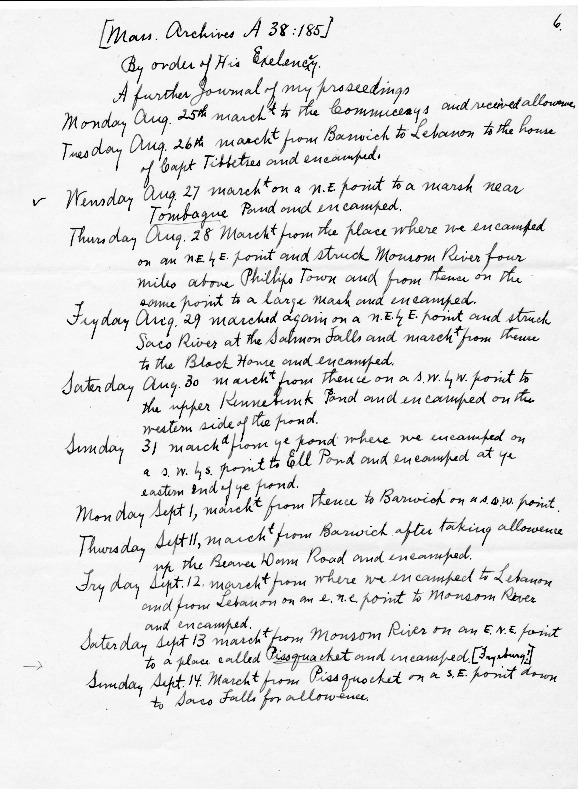 6.
[Mass. Archives A 38:185]
By order of His Exelency.
A further Journal of my proseedings
Monday Aug. 25th marcht to the Commicerys and received allowence
Tuesday Aug. 26th marcht from Barwich to Lebanon to the house
of Capt Tibbetres and encamped.
v Wensday Aug. 27 marcht on a N.E point to a marsh near
Tombague Pand and encamped.
Thursday Aug. 28 Marcht from the place where we encamped
on an N.E by E. point and struck Monsom River four
miles above Phillips Town and from thence on the
same point to a large mash and encamped.
Fryday Aug. 29 marched again on a N.E by E. point and struck
Saco River at the Salmon Falls and marcht from thence
to the Block House and encamped.
Saterday Aug. 30 marcht from thence on a S.W. by W. point to
the upper Kennebunk Pand and encamped on the
western side of the pond.
Sunday 31 marcht from ye pond where we encamped on
a S.W. by S. point to Ell Pond and encamped at ye
eastern end of ye pond.
Monday Sept 1, marcht from thence to Barwich on a S.S.W. point.
Thursday Sept 11, marcht from Barwich after taking allowence
up the Beaver Dam Road and encamped.
Fryday Sept. 12. marcht from where we encamped to Lebanon
and from Lebanon on an e.n.e point to Monsom River
and encamped.
Saterday Sept 13 marcht from Monsom River on an E.N.E. point
to a place called Pissquachet and encamped. [Fryeburg?]
→ Sunday Sept. 14. Marcht from Pissquochet on a S.E. point down
to Saco Falls for allowence.